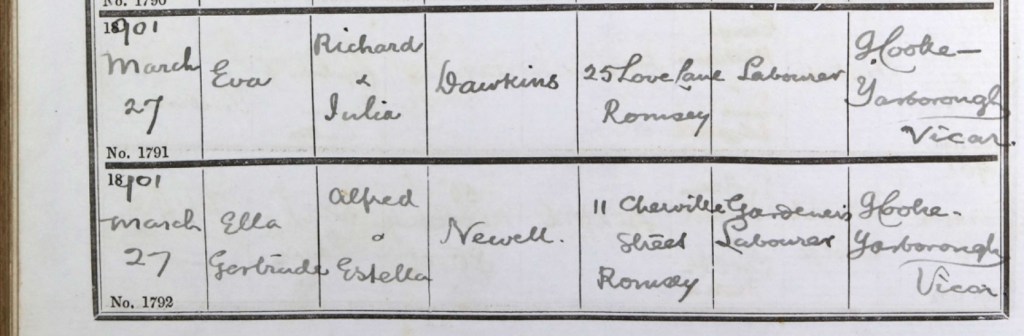 No. 1790
1901
March
27
Eva
Richard
&
Julia
Dawkins
25 Love Lane
Romsey
Labourer
J. Cooke-
Yarborough
Vicar.
No. 1791
1901
March
27
Ella
Gertrude
Alfred
&
Estella
Newell.
11 Cherville
Street
Romsey
Gardener's
Labourer
J Cooke-
Yarborough
Vicar
No. 1792